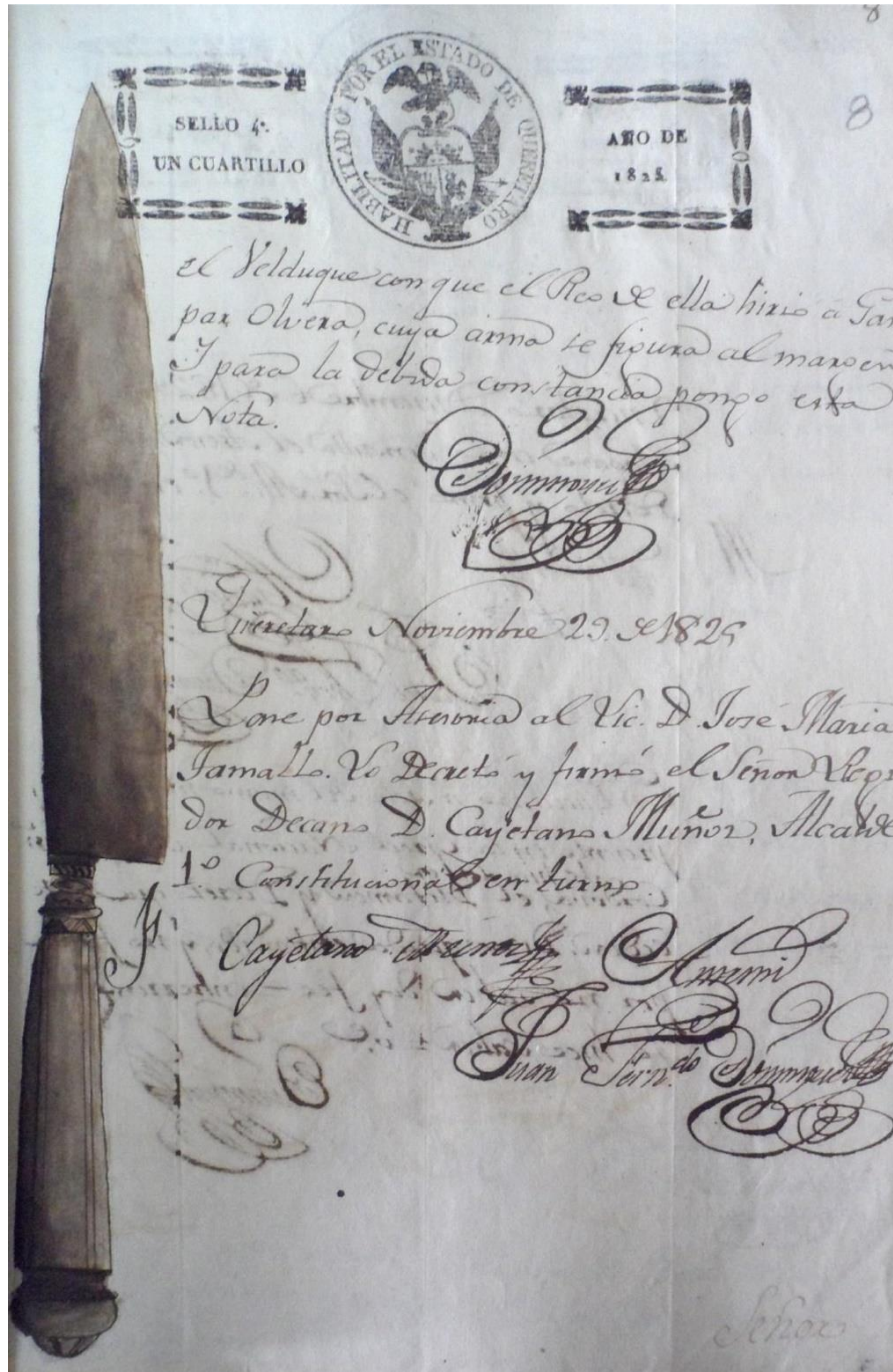 8
8
SELLO 4º.
UN CUARTILLO
HABILITADO POR EL ESTADO DE QUERETARO
AÑO DE
1825
el Velduque con que el Reo de ella hirio á Gas
par Olvera, cuya arma se figura al margen
Y para la debida constancia pongo esta
Nota.
Dominguez
Queretaro Noviembre 29. de 1825
Pase por Asesoria al Lic. D. José Maria
Jamallo. Lo Decretó y firmó, el Señor Regi
dor Decano D. Cayetano Muñoz, Alcalde
1º Constitucional en turno.
Cayetano Muñoz
Ante mi
Juan Fern.do Dominguez
Señor